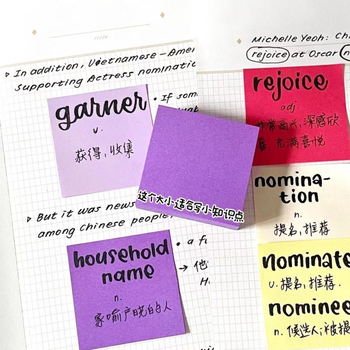 ▷ In addition, Vietnamese-Amer
Supporting Actress nominati
Michelle Yeoh: Ch
rejoice at Oscar n
garner
v.
获得,收集
• If som
rejoice
adj.
非常高兴,深感欣
喜 充满喜悦
这个大小适合写小知识点
nomina-
tion
n.
提名,推荐
▷ But it was news
among chinese people
household
name
n.
家喻户晓的人
• a f
→ 他
H
nominate
v. 提名,推荐.
nominee
n. 候选人;被提